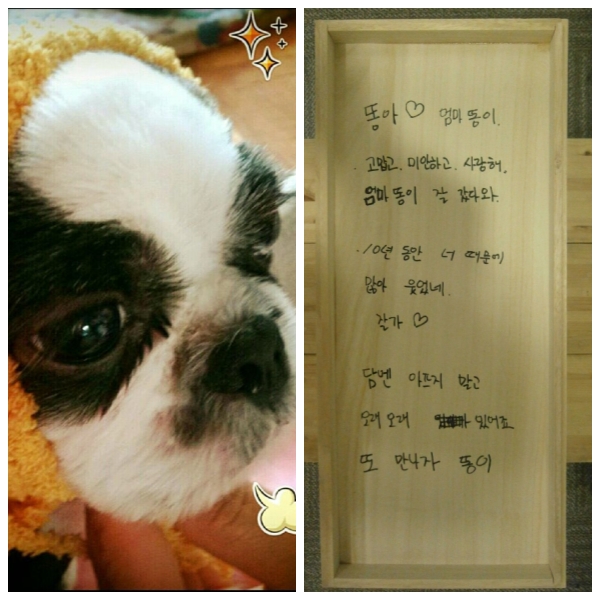 똥아♡ 엄마 똥이.
고맙고. 미안하고. 사랑해.
엄마 똥이 잘 갔다와.
10년 동안 너 때문에
많이 웃었네.
잘가♡
담엔 아프지 말고
오래 오래 있어죠
또 만나자 똥이